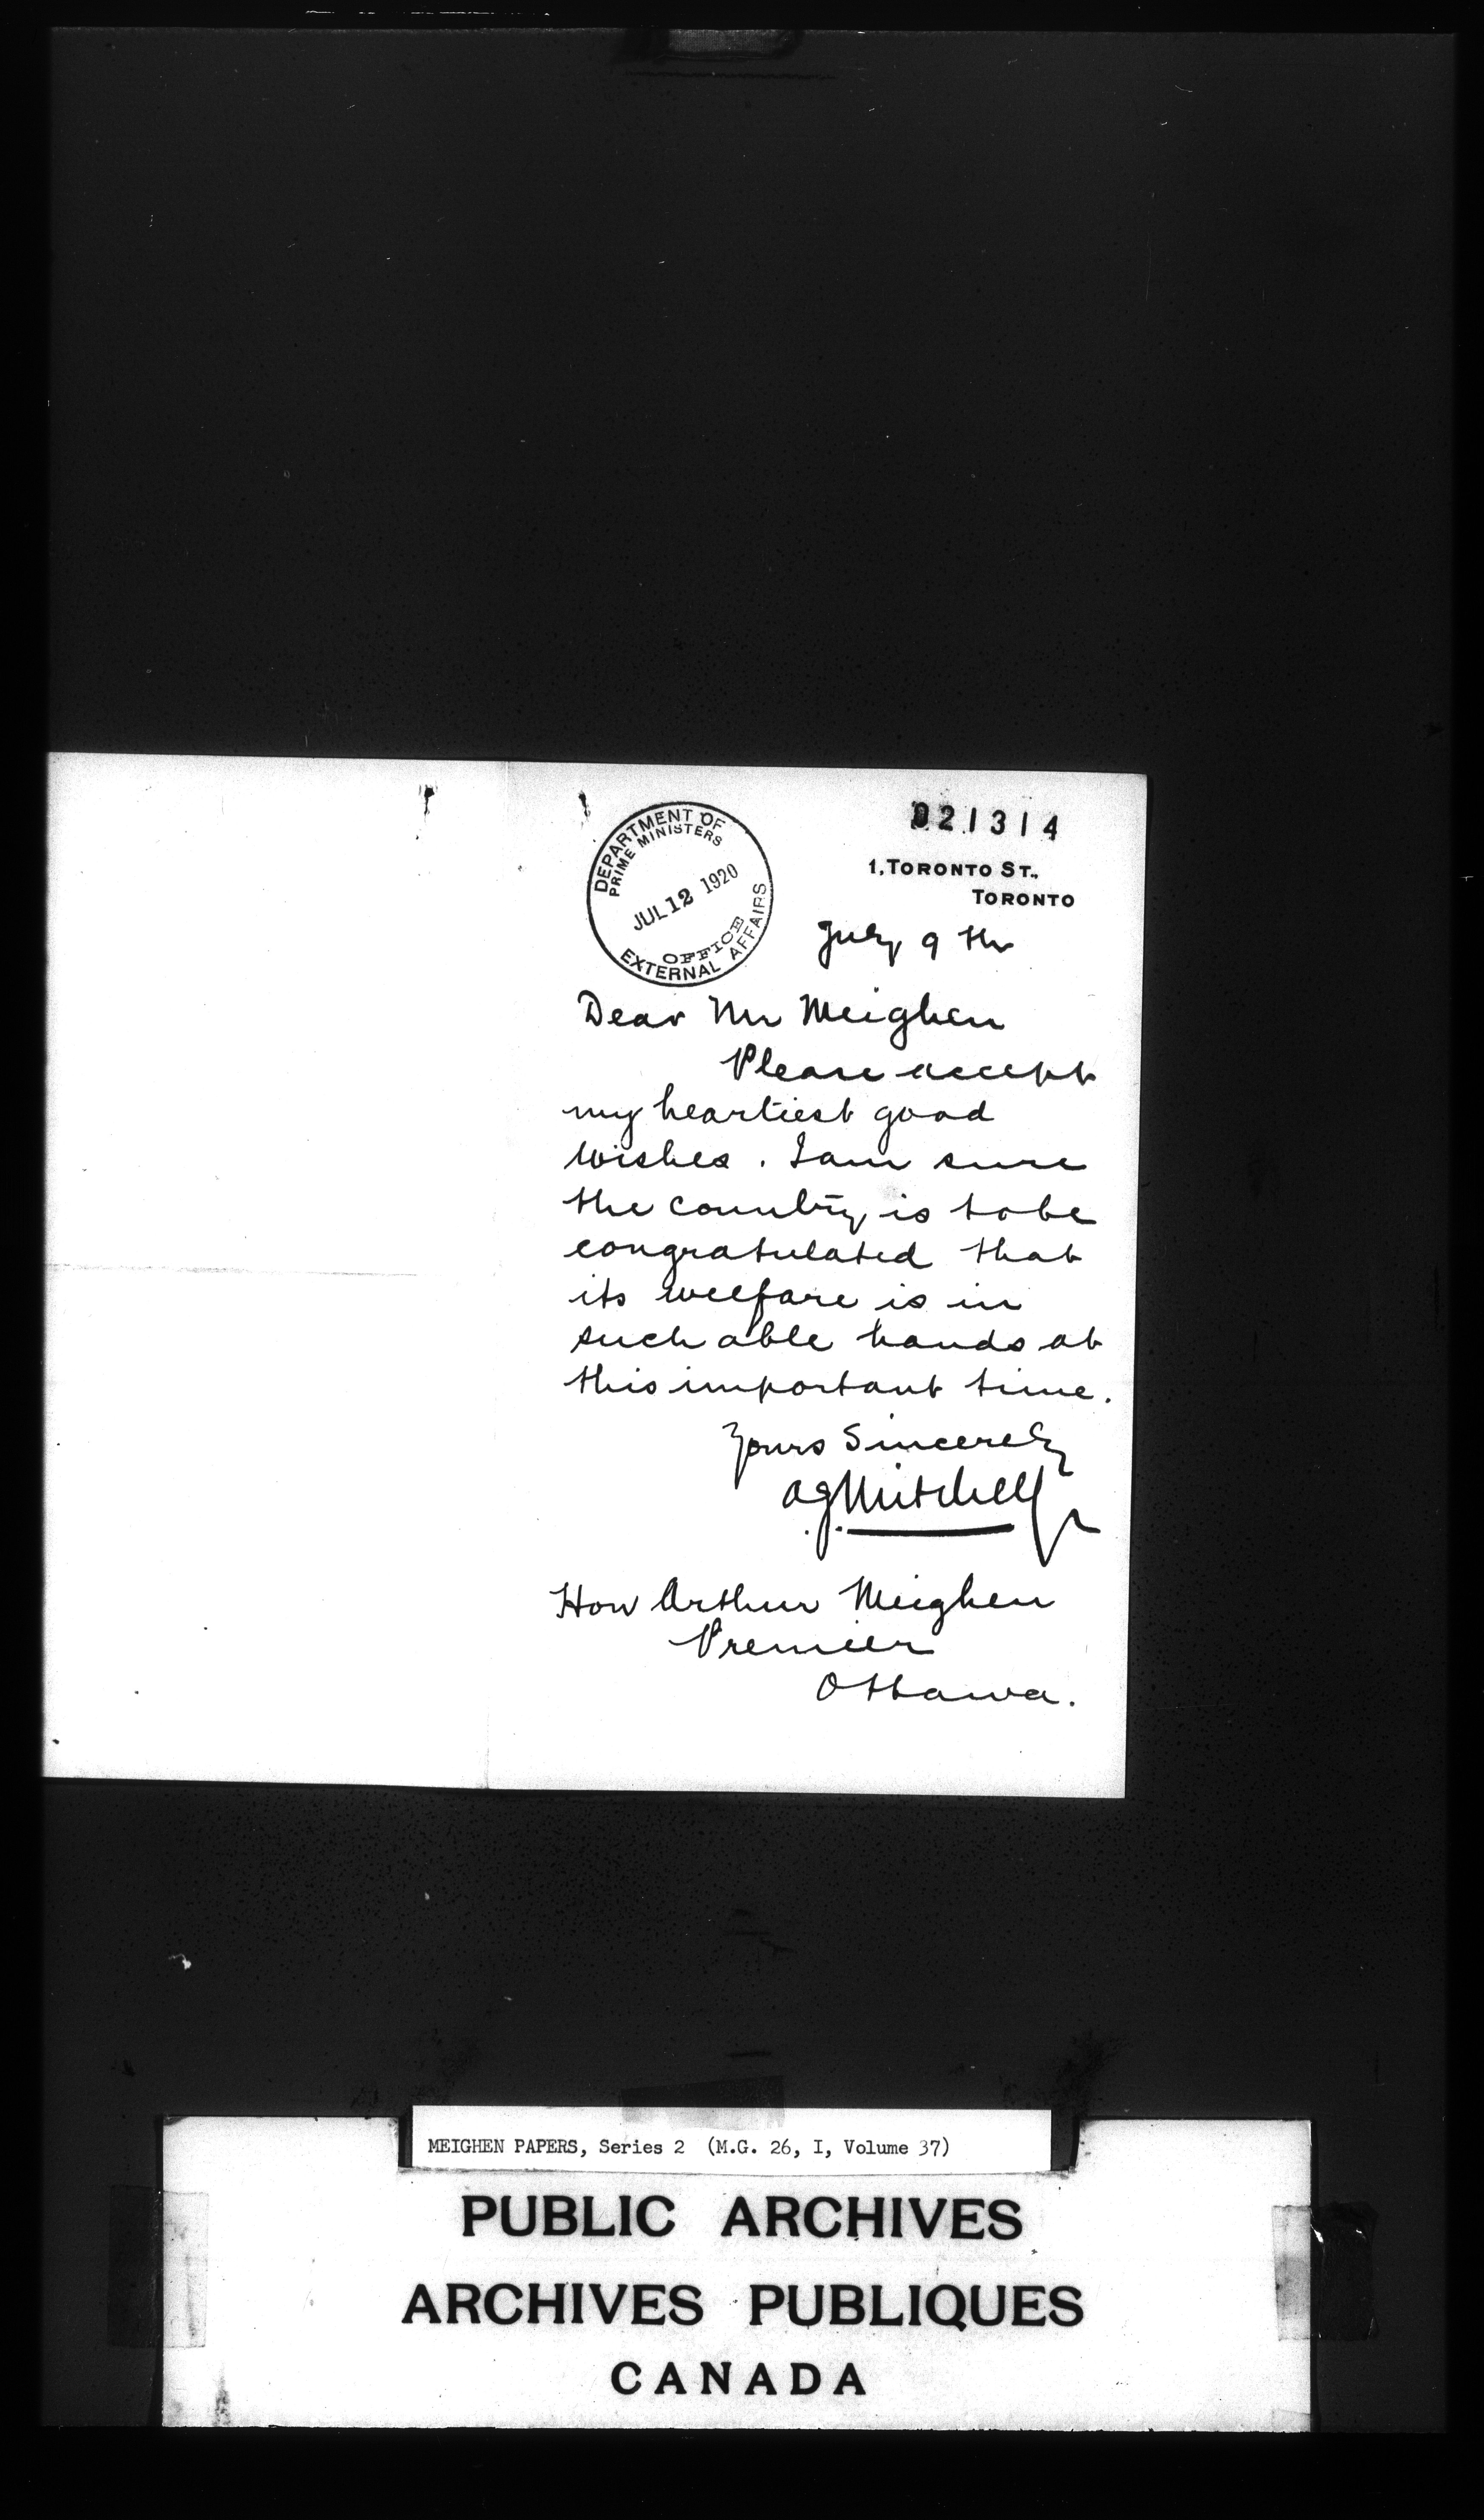 DEPARTMENT OF
PRIME MINISTERS
JUL 12 1920
OFFICE
EXTERNAL AFFAIRS
021314
1, TORONTO ST.,
TORONTO
July 9th
Dear Mr Meighen
Please accept
my heartiest good
wishes. I am sure
the country is to be
congratulated that
its welfare is in
such able hands at
this important time.
Yours Sincerely
A.G. Mitchell
Hon Arthur Meighen
Premier
Ottawa.
MEIGHEN PAPERS, Series 2 (M.G. 26, I, Volume 37)
PUBLIC ARCHIVES
ARCHIVES PUBLIQUES
CANADA